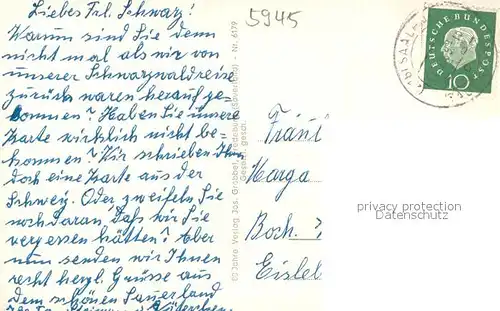 Liebes Frl. Schwarz!
Warum sind Sie denn
nicht mal als wir von
unserer Schwarzwaldreise
zurück waren herauf ge-
kommen? Haben Sie unsere
Karte wirklich nicht be-
kommen? Wir schrieben Ihnen
doch eine Karte aus der
Schweiz. Oder zweifeln Sie
noch daran, daß wir Sie
vergessen hätten? Aber
nun senden wir Ihnen
recht herzl. Grüsse aus
dem schönen Sauerland
5945
Verlag Jos. Grobbel, Fredeburg (Sauerland) - Nr. 6179
Gesch. gesch.
DEUTSCHE BUNDESPOST
10
Fräul
Marga
Boch.
Eisleb
privacy protection
Datenschutz